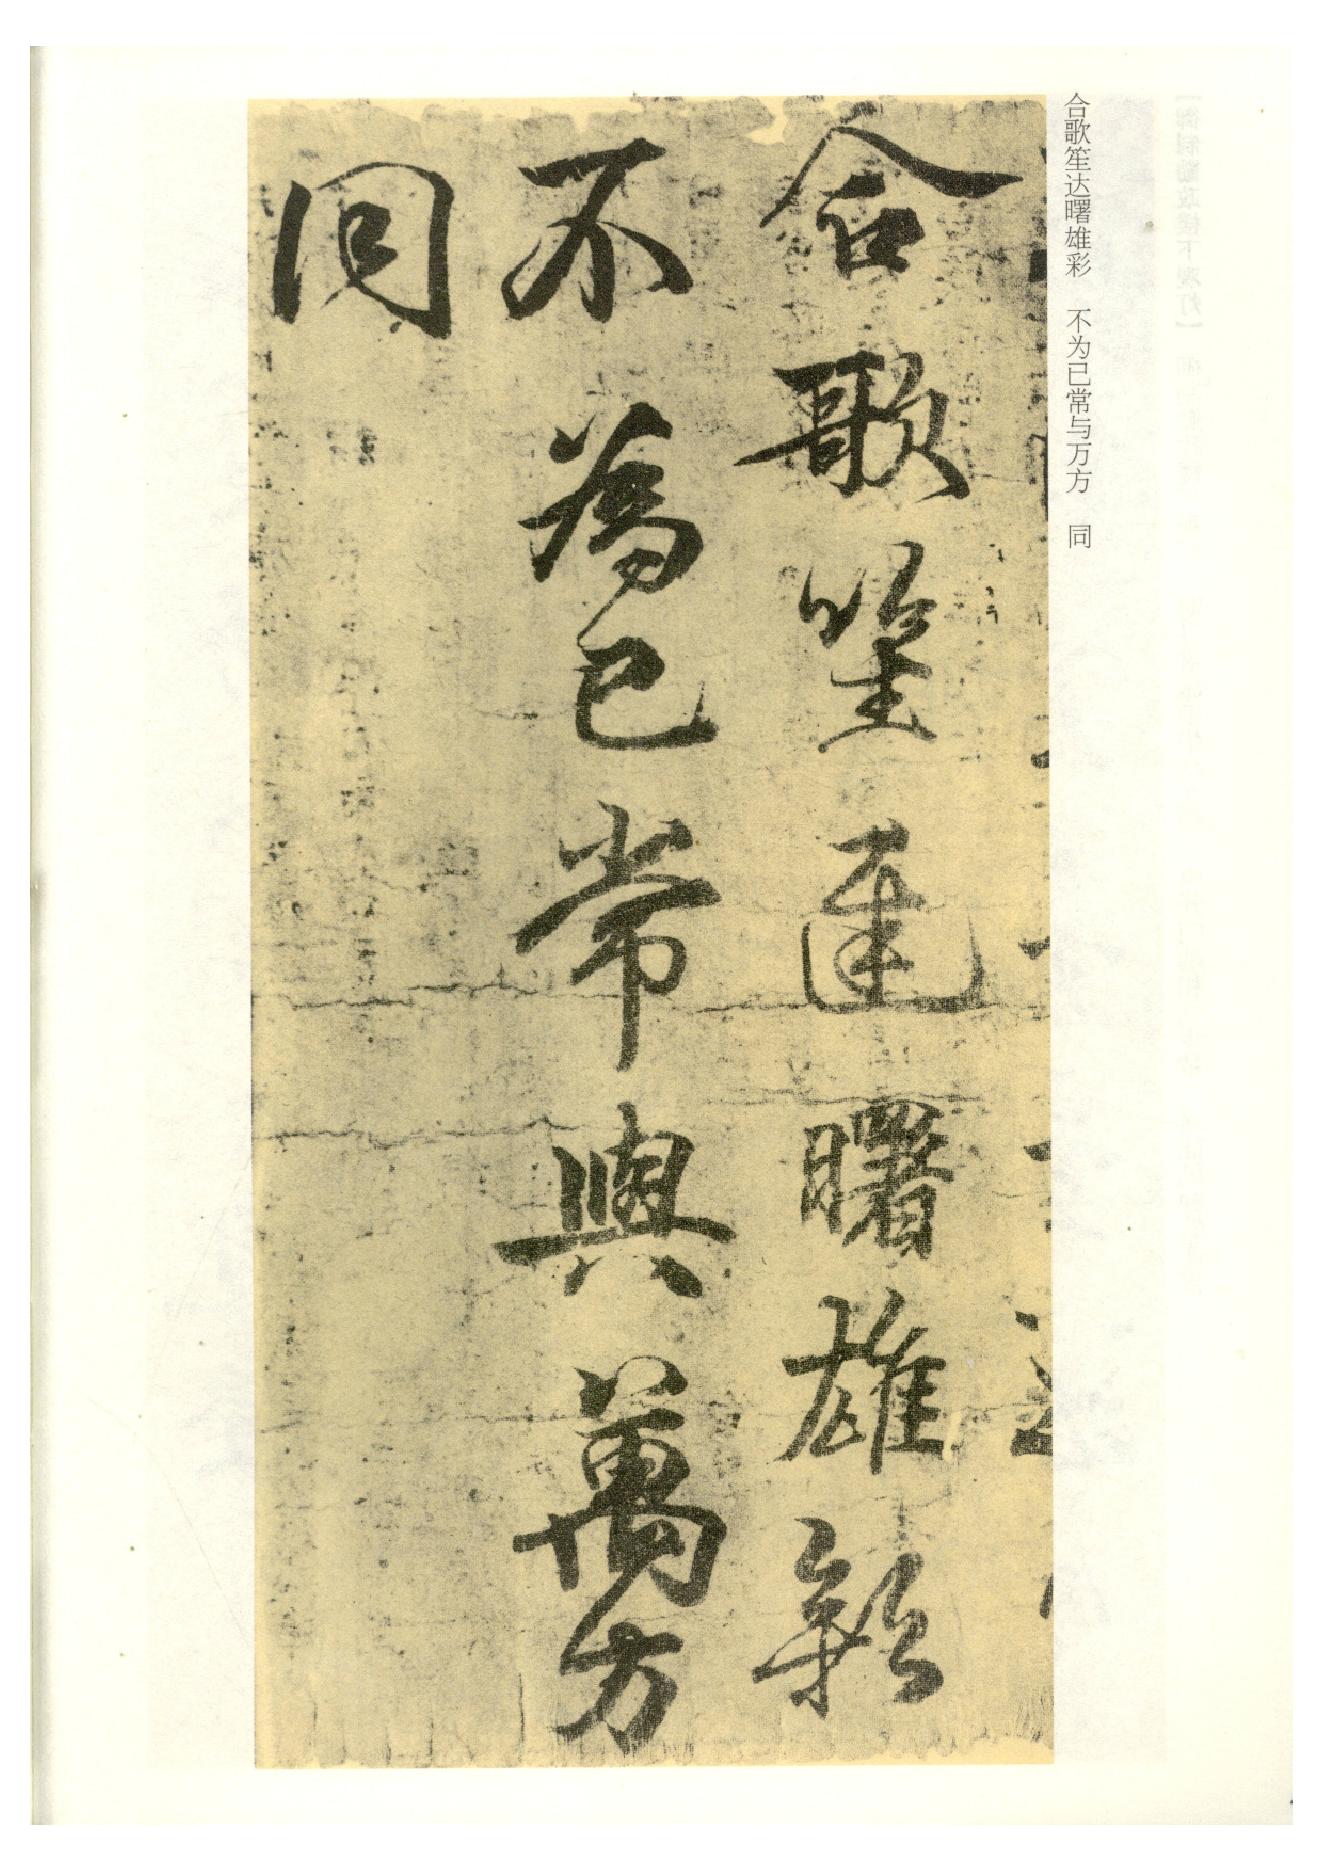 合歌笙达曙雄彩　不为已常与万方　同
合歌笙達曙雄彩
不為已常與萬方
同